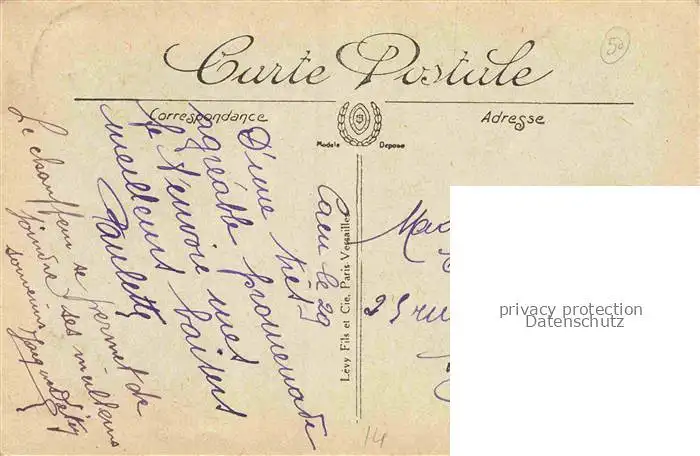 Carte Postale
Correspondance
Adresse
Modèle Déposé
Lévy Fils et Cie, Paris-Versailles
Caen le 29
D'une très
agréable promenade
je t'envoie mes
meilleurs baisers
Paulette
Le chauffeur se permet de
joindre ses meilleurs
souvenirs
23 rue
50
14
privacy protection
Datenschutz